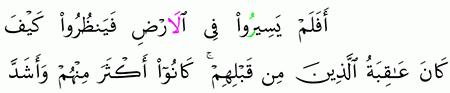 أَفَلَمْ يَسِيرُوا۟ فِى ٱلَارْضِ فَيَنظُرُوا۟ كَيْفَ
كَانَ عَـٰقِبَةُ ٱلَّذِينَ مِن قَبْلِهِمْ ۚ كَانُوٓا۟ أَكْثَرَ مِنْهُمْ وَأَشَدَّ